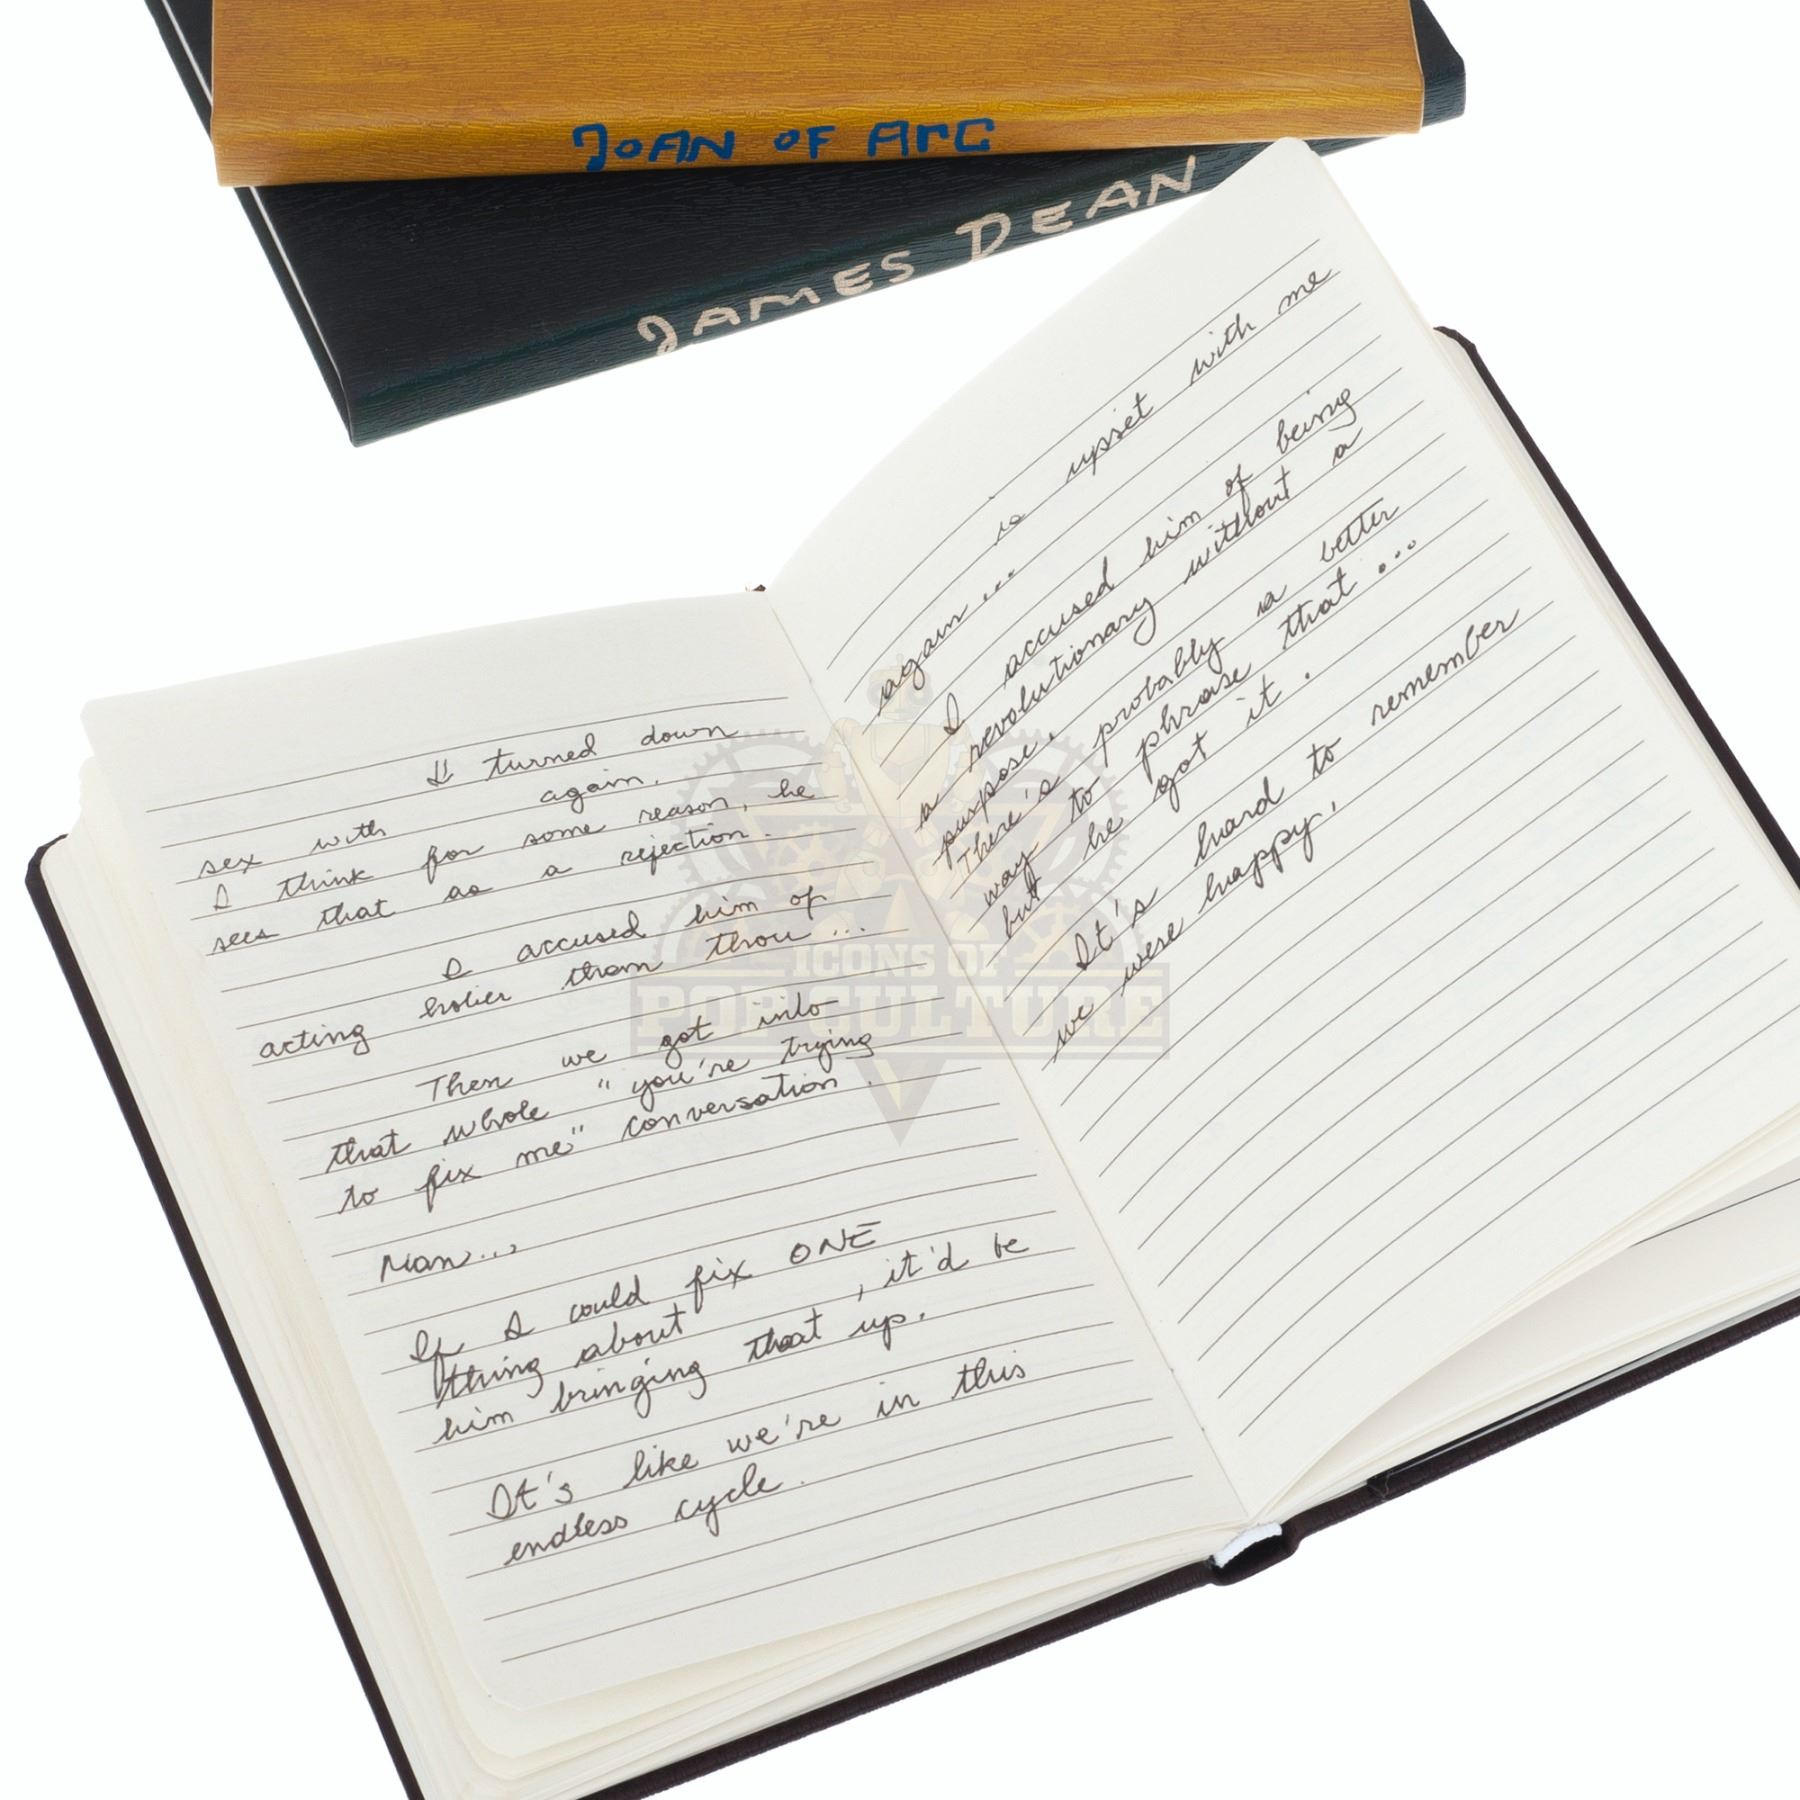 JOAN OF ArC
JAMES DEAN
I turned down
sex with again.
I think for some reason, he
sees that as a rejection.
I accused him of
acting holier than thou...
Then we got into
that whole "you're trying
to fix me" conversation.
Man...
If I could fix ONE
thing about , it'd be
him bringing that up.
It's like we're in this
endless cycle.
is upset with me
again...
I accused him of being
a revolutionary without a
purpose.
There's probably a better
way to phrase that...
but he got it.
It's hard to remember
we were happy.
ICONS OF
POP CULTURE